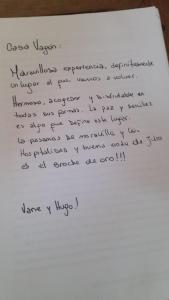 Casa Vagón:
Maravillosa experiencia, definitivamente
un lugar al que vamos a volver.
Hermoso, acogedor y disfrutable en
todas sus formas. La paz y
es algo que define este lugar.
La pasamos de maravilla y la
Hospitalidad y buena onda de Julio
es el broche de oro!!!
Vane y Hugo!